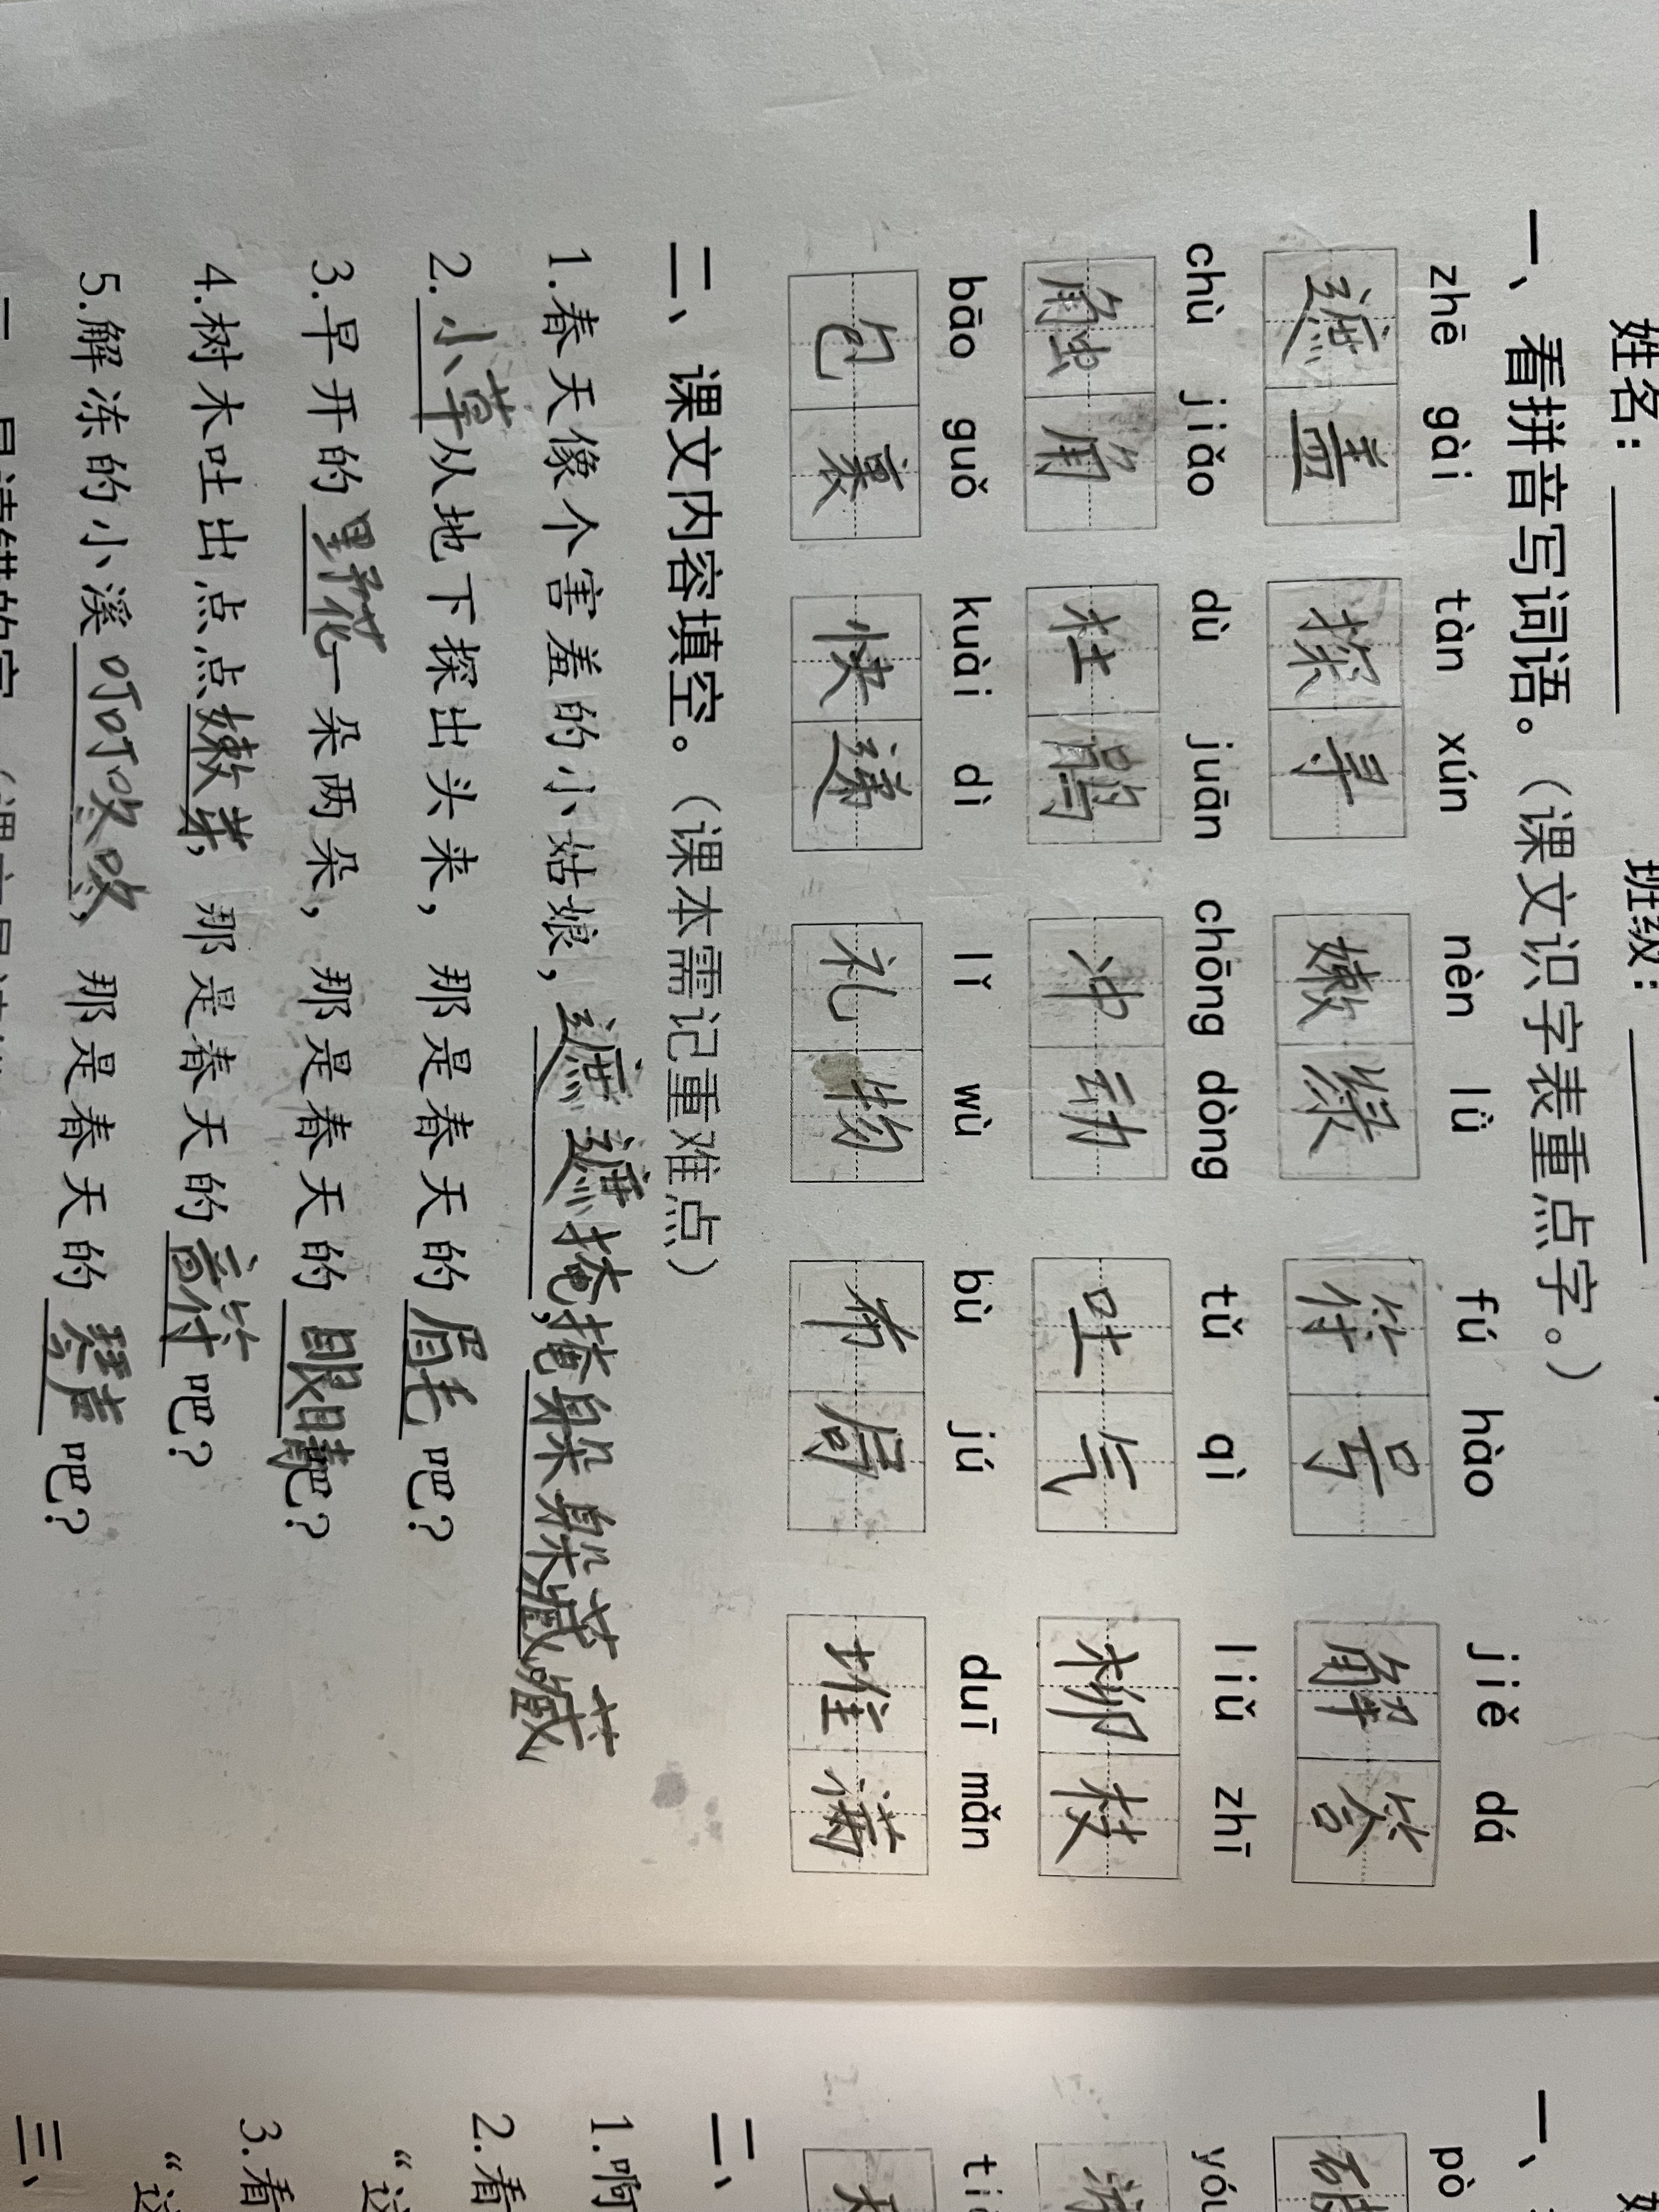 姓名：
班级：
一、看拼音写词语。（课文识字表重点字。）
zhē gài tàn xún nèn lǜ fú hào jiě dá
遮盖 探寻 嫩绿 符号 解答
chù jiǎo dù juān chōng dòng tǔ qì liǔ zhī
触角 杜鹃 冲动 吐气 柳枝
bāo guǒ kuài dì lǐ wù bù jú duī mǎn
包裹 快递 礼物 布局 堆满
二、课文内容填空。（课本需记重难点）
1.春天像个害羞的小姑娘，遮遮掩掩，躲躲藏藏
2.小草从地下探出头来，那是春天的眉毛吧？
3.早开的野花一朵两朵，那是春天的眼睛吧？
4.树木吐出点点嫩芽，那是春天的音符吧？
5.解冻的小溪叮叮咚咚，那是春天的琴声吧？
一、
pò
yóu
二、
1.啊
2.看
“这
3.看
“这
三、